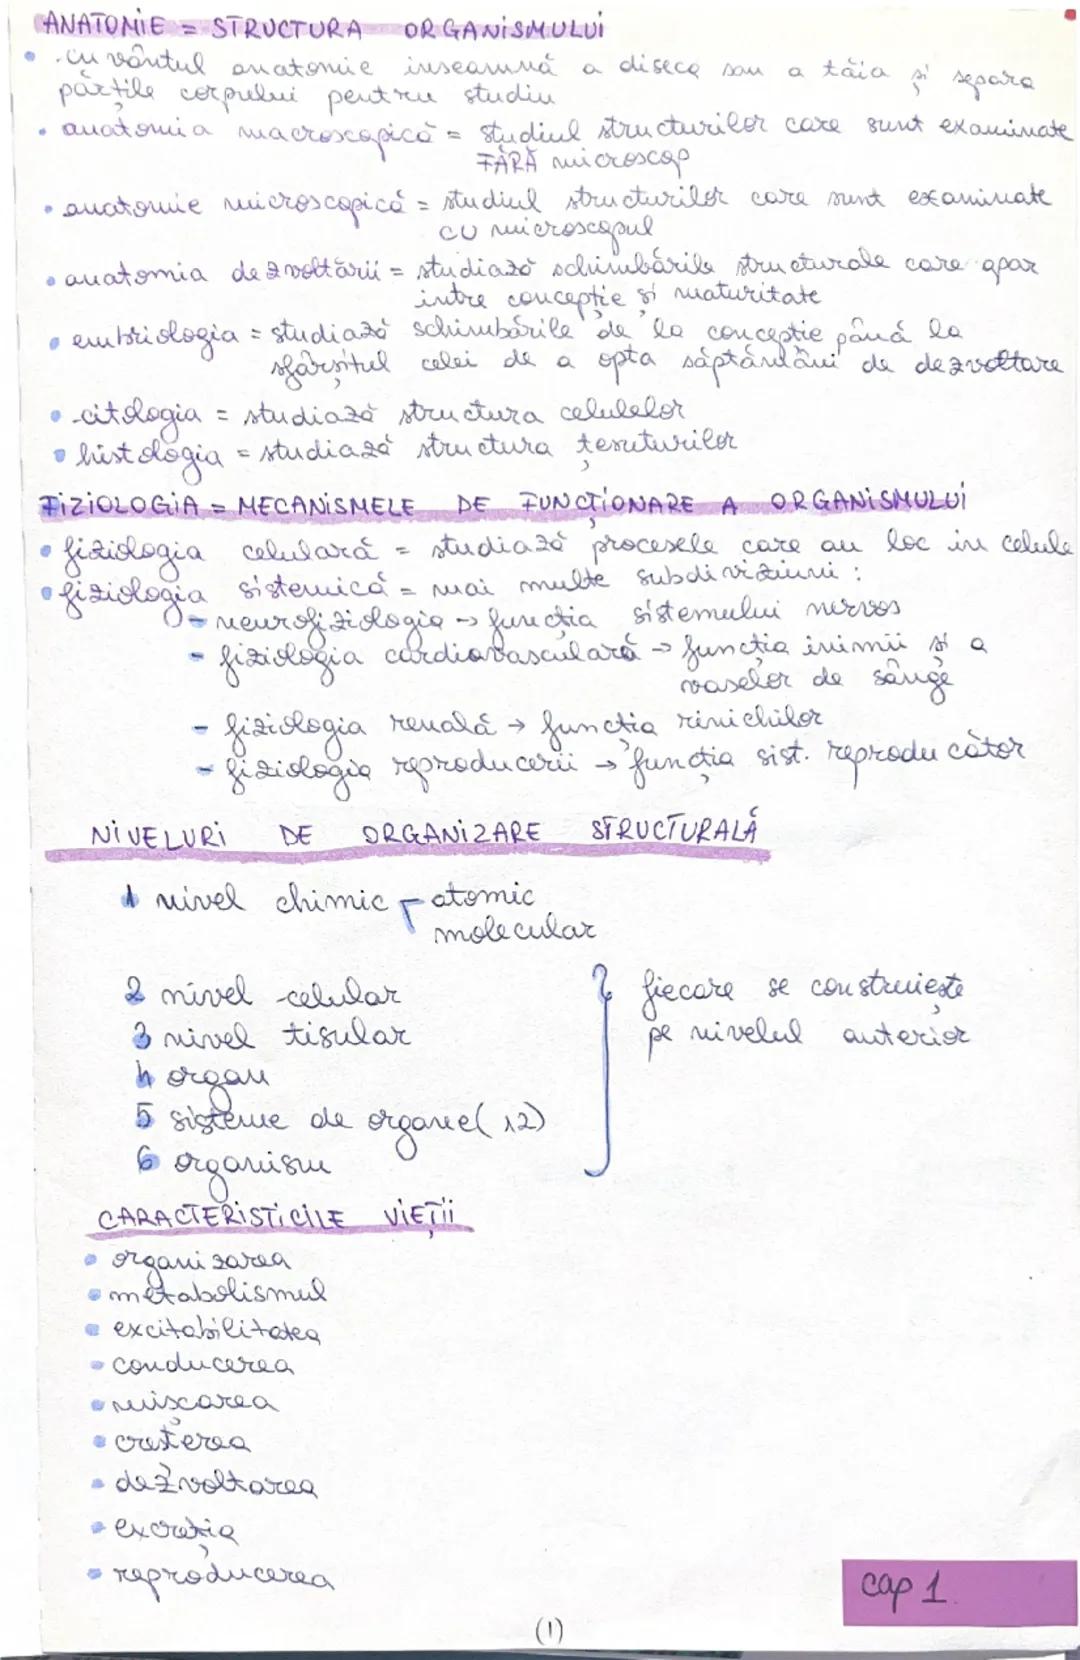 ANATOMIE = STRUCTURA ORGANISMULUI
• cuvântul anatomie inseamnă a diseca sau a tăia și separa
părțile corpului pentru studiu
• anatomia macroscopică = studiul structurilor care sunt examinate
FĂRĂ microscop
• anatomie microscopică = studiul structurilor care sunt examinate
CU microscopul
• anatomia dezvoltării = studiază schimbările structurale care apar
intre concepție și maturitate
• embriologia = studiază schimbările de la concepție până la
sfârșitul celei de a opta săptămâni de dezvoltare
• citologia = studiază structura celulelor
• histologia = studiază structura țesuturilor
FIZIOLOGIA = MECANISMELE DE FUNCȚIONARE A ORGANISMULUI
• fiziologia celulară = studiază procesele care au loc in celule
• fiziologia sistemică = mai multe subdiviziuni :
- neurofiziologia → funcția sistemului nervos
- fiziologia cardiovasculară → funcția inimii și a
vaselor de sânge
- fiziologia renală → funcția rinichilor
- fiziologia reproducerii → funcția sist. reproducător
NIVELURI DE ORGANIZARE STRUCTURALĂ
1 nivel chimic - atomic
molecular
2 nivel celular
3 nivel tisular
4 organ
5 sisteme de organe (12)
6 organism
} fiecare se construiește
pe nivelul anterior
CARACTERISTICILE VIEȚII
• organizarea
• metabolismul
• excitabilitatea
• conducerea
• mișcarea
• creșterea
• dezvoltarea
• excreția
• reproducerea
cap 1.
(1)